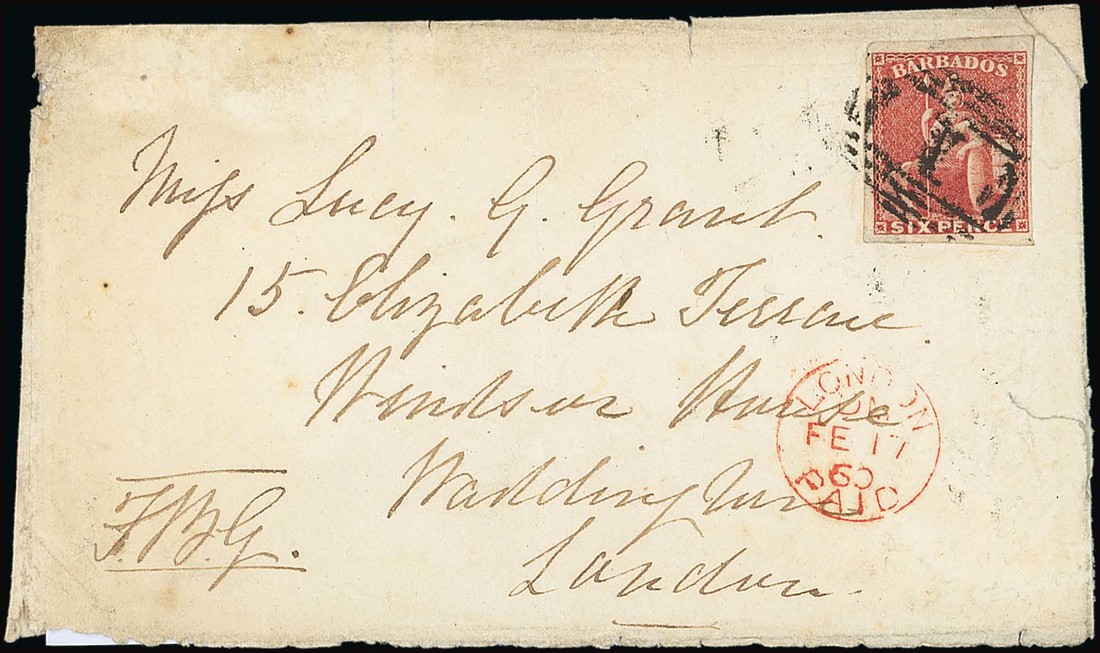 BARBADOS
SIX PENCE
Miss Lucy. G. Grant.
15. Elizabeth Terrace
Windsor House
London
LONDON
FE 17
60
PAID
F.B.G.